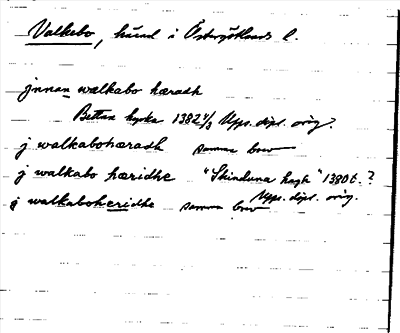 Valkebo, härad i Östergötlands l.
jnnan walkabo hæradh
kyrka 1382 4/3 Upps. dipl. orig.
j walkabohæradh samma brev
j walkabo hæridhe "Skinduna hage" 1380 t. ?
Upps. dipl. orig.
j walkaboheridhe samma brev